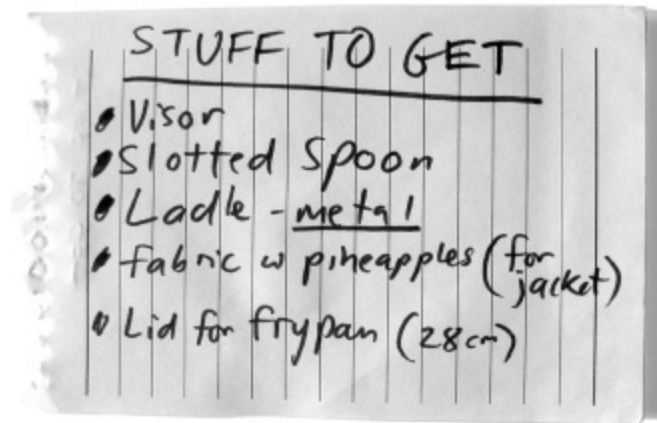 STUFF TO GET
• Visor
• Slotted Spoon
• Ladle - metal
• fabric w pineapples (for jacket)
• Lid for frypan (28cm)